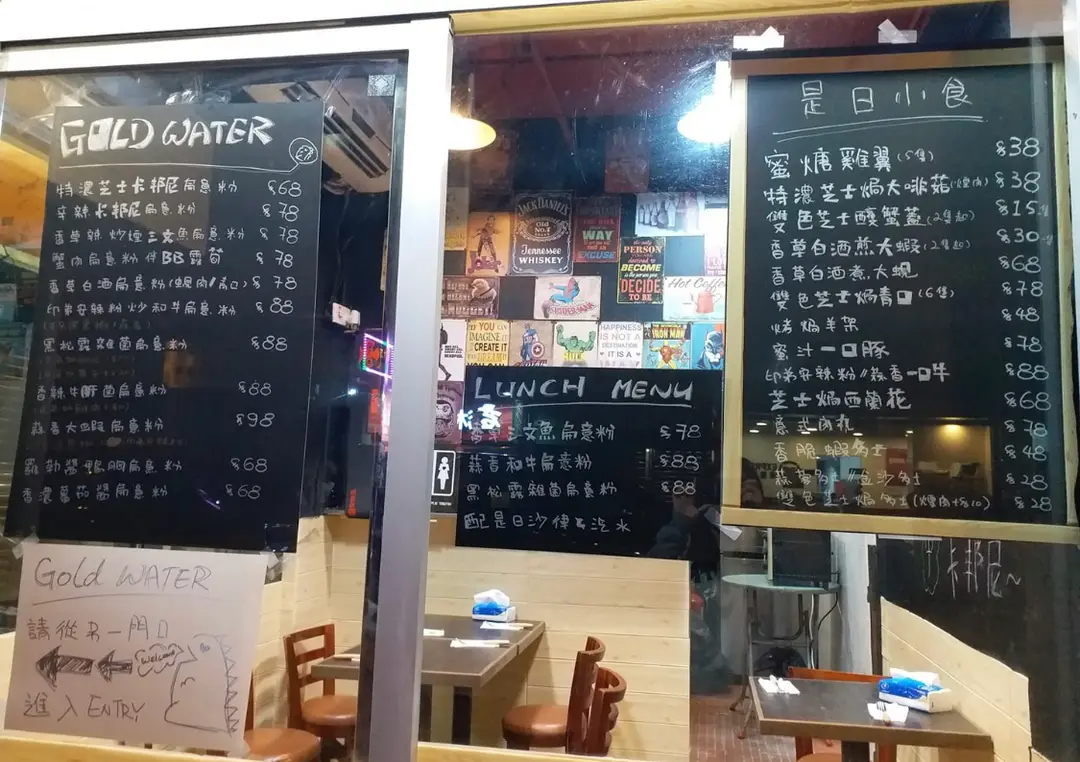 GOLD WATER
特濃芝士卡邦尼扁意粉 $68
辛辣卡邦尼扁意粉 $78
香草辣炒煙三文魚扁意粉 $78
蟹肉扁意粉伴BB露筍 $78
香草白酒扁意粉(蜆肉/青口) $78
印弟安辣粉炒和牛扁意粉 $88
黑松露雜菌扁意粉 $88
香辣牛肝菌扁意粉 $88
蒜香大蝦扁意粉 $98
羅勒醬鴨胸扁意粉 $68
香濃蕃茄醬扁意粉 $68
Gold WATER
請從另一門口
Welcome
進入 ENTRY
JACK DANIEL'S
OLD NO.7
Tennessee
WHISKEY
WAY
EXCUSE
PERSON
YOU ARE
BECOME
DECIDE
TO BE
Hot Coffee
IF YOU CAN
IMAGINE IT
CREATE IT
HAPPINESS
IS NOT A
DESTINATION
IT IS A
HULK
IRON MAN
LUNCH MENU
三文魚扁意粉 $78
蒜香和牛扁意粉 $88
黑松露雜菌扁意粉 $88
配是日沙律&汽水
是日小食
蜜糖雞翼(5隻) $38
特濃芝士焗大啡菇(煙肉) $38
雙色芝士釀蟹蓋(2隻起) $15/隻
香草白酒煎大蝦(2隻起) $30
香草白酒煮大蜆 $68
雙色芝士焗青口(6隻) $78
烤焗羊架 $48
蜜汁一口豚 $78
印弟安辣粉//蒜香一口牛 $88
芝士焗西蘭花 $68
意式肉丸 $78
香脆蝦多士 $48
蒜蓉多士//金沙多士 $28
雙色芝士焗多士(煙肉+$10) $28
卡邦尼~